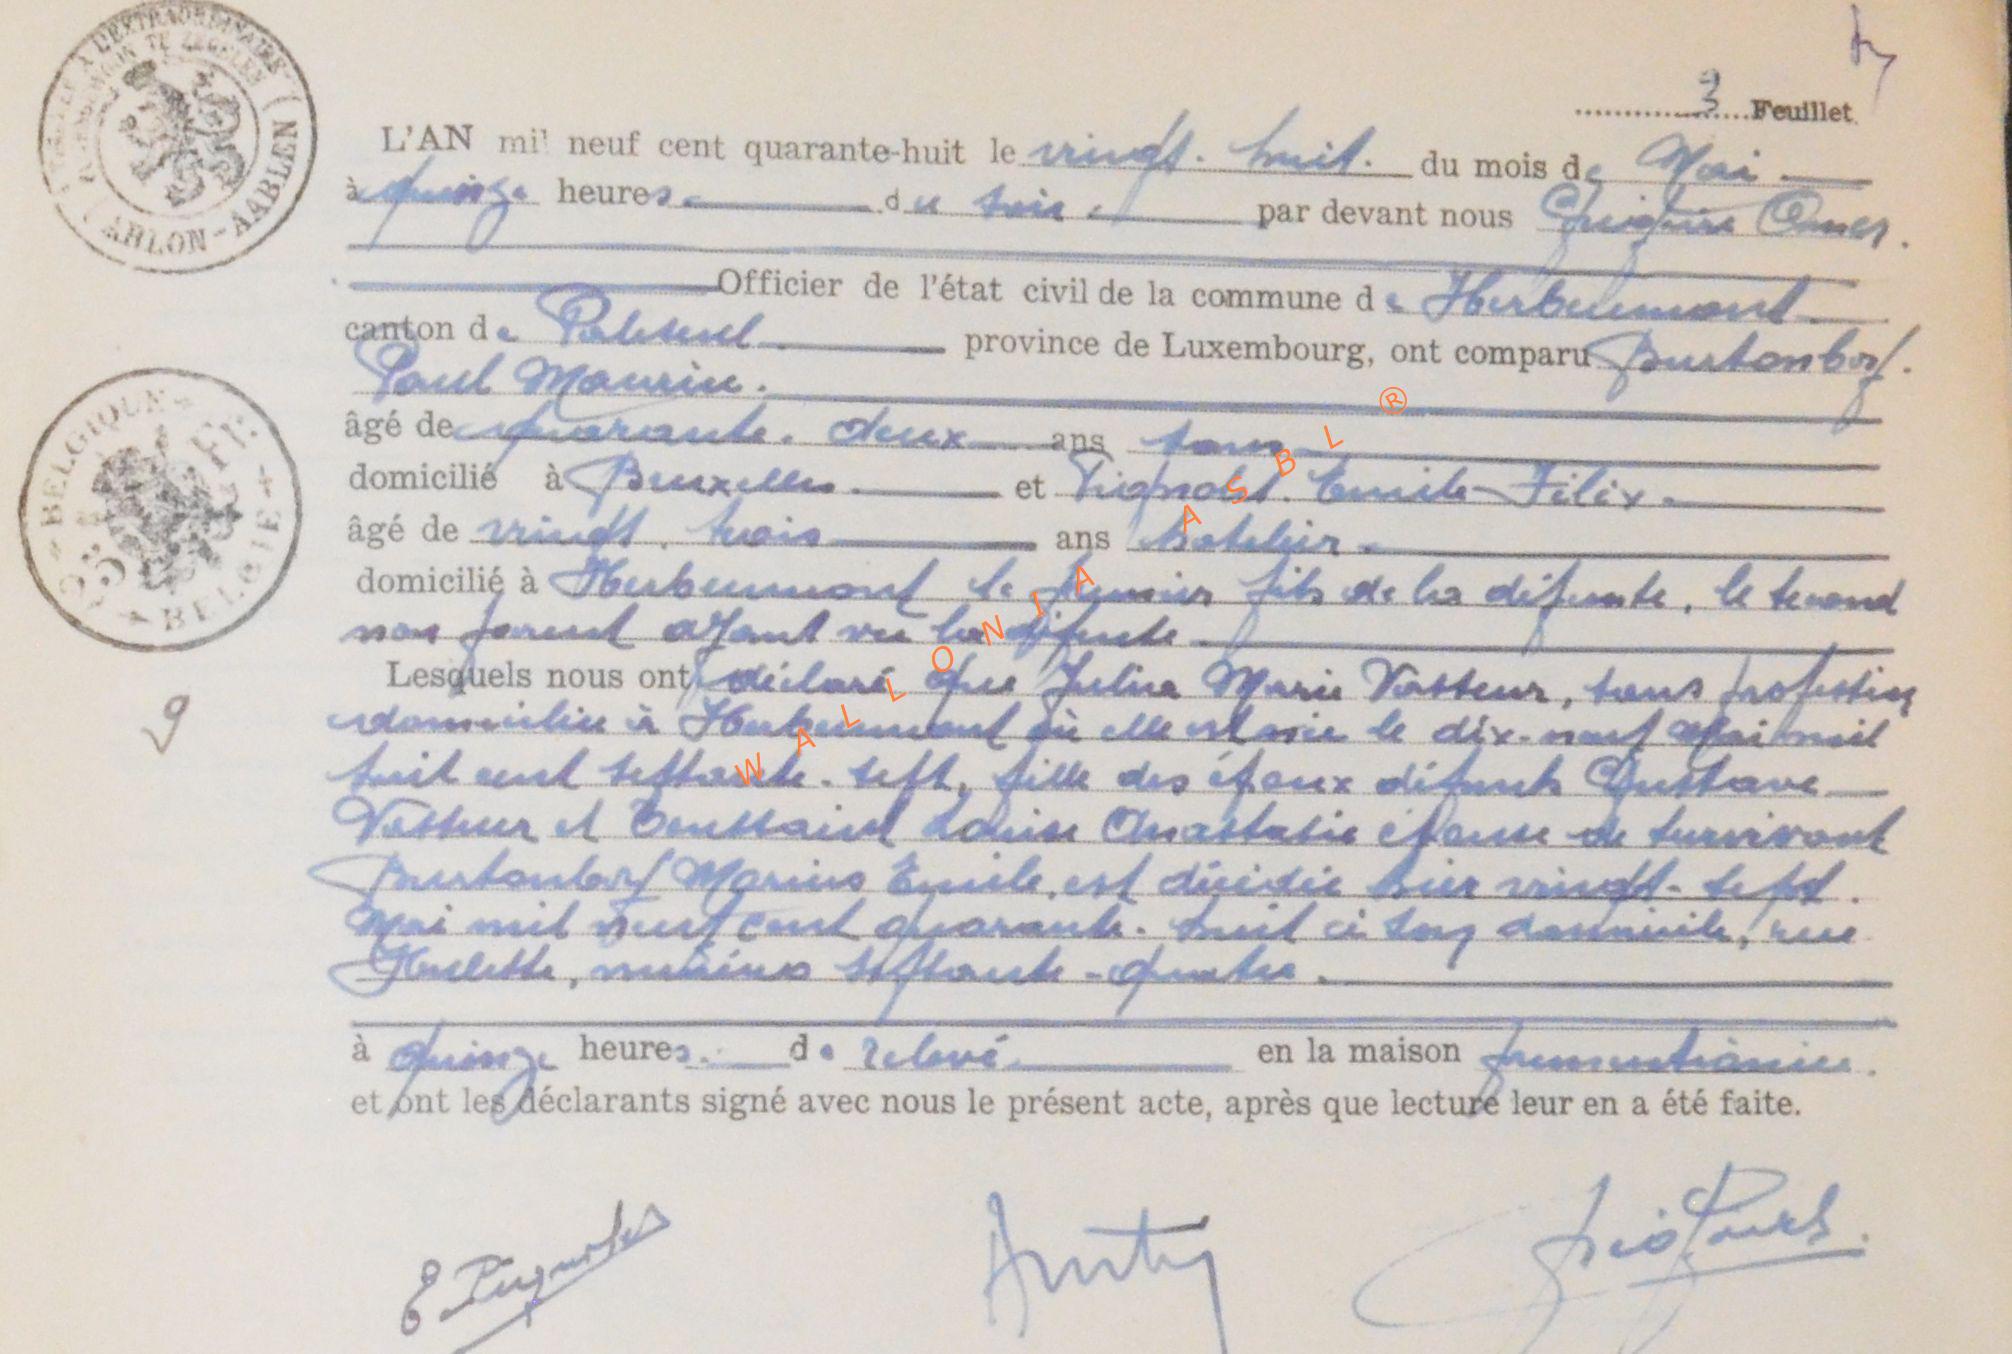 À L'EXTRAORDINAIRE
(ARLON-AARLEN)
3 Feuillet.
L'AN mil neuf cent quarante-huit le vingt-huit. du mois de Mai
à quinze heures. du soir. par devant nous Omer.
Officier de l'état civil de la commune de Herbeumont
canton de Paliseul province de Luxembourg, ont comparu Burtonboy.
Paul Maurice.
âgé de quarante-deux ans sans
domicilié à Bruxelles. et Pignolet. Emile-Félix.
âgé de vingt-trois ans hotelier.
domicilié à Herbeumont le premier fils de la défunte, le second
non parent ayant vu la défunte.
Lesquels nous ont déclaré que Julia Marie Vasseur, sans profession
domiciliée à Herbeumont où elle est née le dix-neuf Mai mil
huit cent septante-sept, fille des époux défunts Gustave
Vasseur et Toussaint Louise Anastasie épouse de survivant
Burtonboy Marius Emile, est décédée hier vingt-sept.
Mai mil neuf cent quarante-huit en son domicile, rue
numéro septante-quatre.
à quinze heures. de relevé en la maison
et ont les déclarants signé avec nous le présent acte, après que lecture leur en a été faite.
BELGIQUE
BELGIE
9
WALLONIA ASBL ®